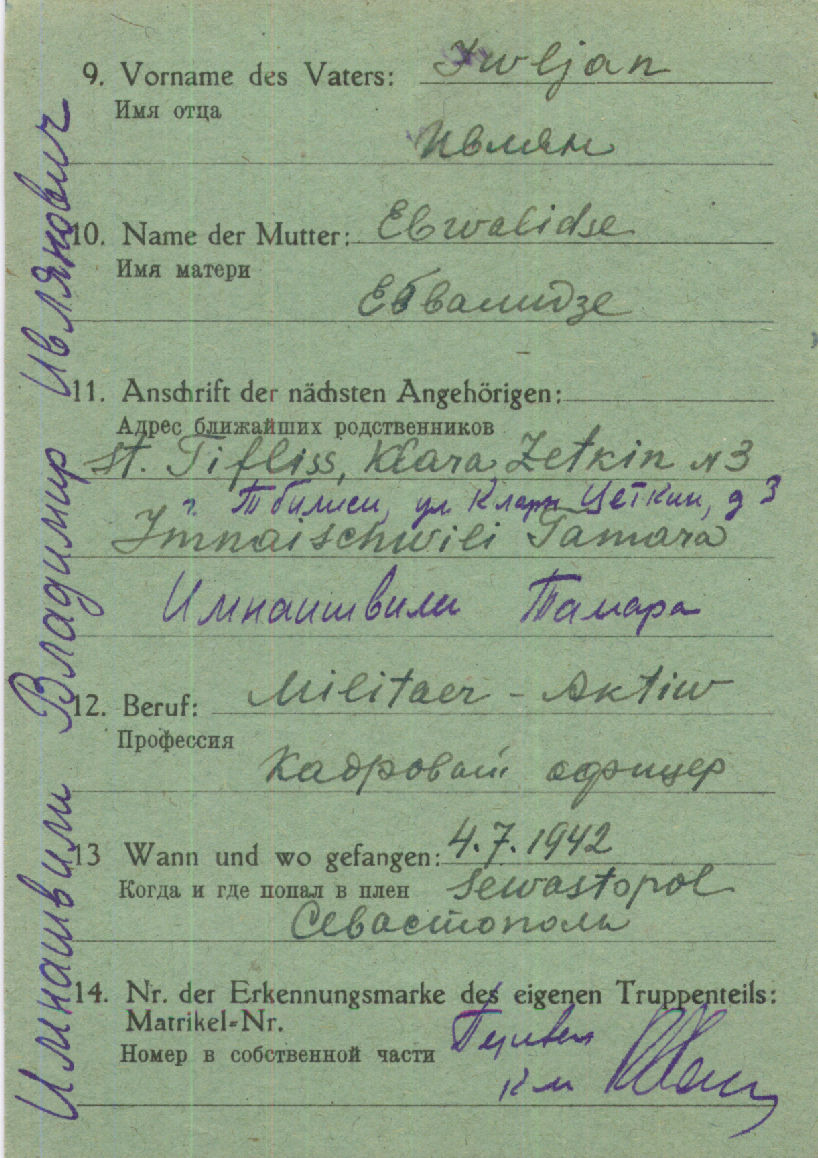 Имнашвили Владимир Ивлянович
9. Vorname des Vaters: Iwljan
Имя отца
Ивлян
10. Name der Mutter: Ebwalidse
Имя матери
Ебвалидзе
11. Anschrift der nächsten Angehörigen:
Адрес ближайших родственников
st. Tifliss, Klara Zetkin N3
г. Тбилиси, ул. Клары Цеткин, д 3
Imnaischwili Tamara
Имнаишвили Тамара
12. Beruf: Militaer - Aktiw
Профессия
Кадровый офицер
13 Wann und wo gefangen: 4.7.1942
Когда и где попал в плен Sewastopol
Севастополь
14. Nr. der Erkennungsmarke des eigenen Truppenteils:
Matrikel-Nr.
Номер в собственной части